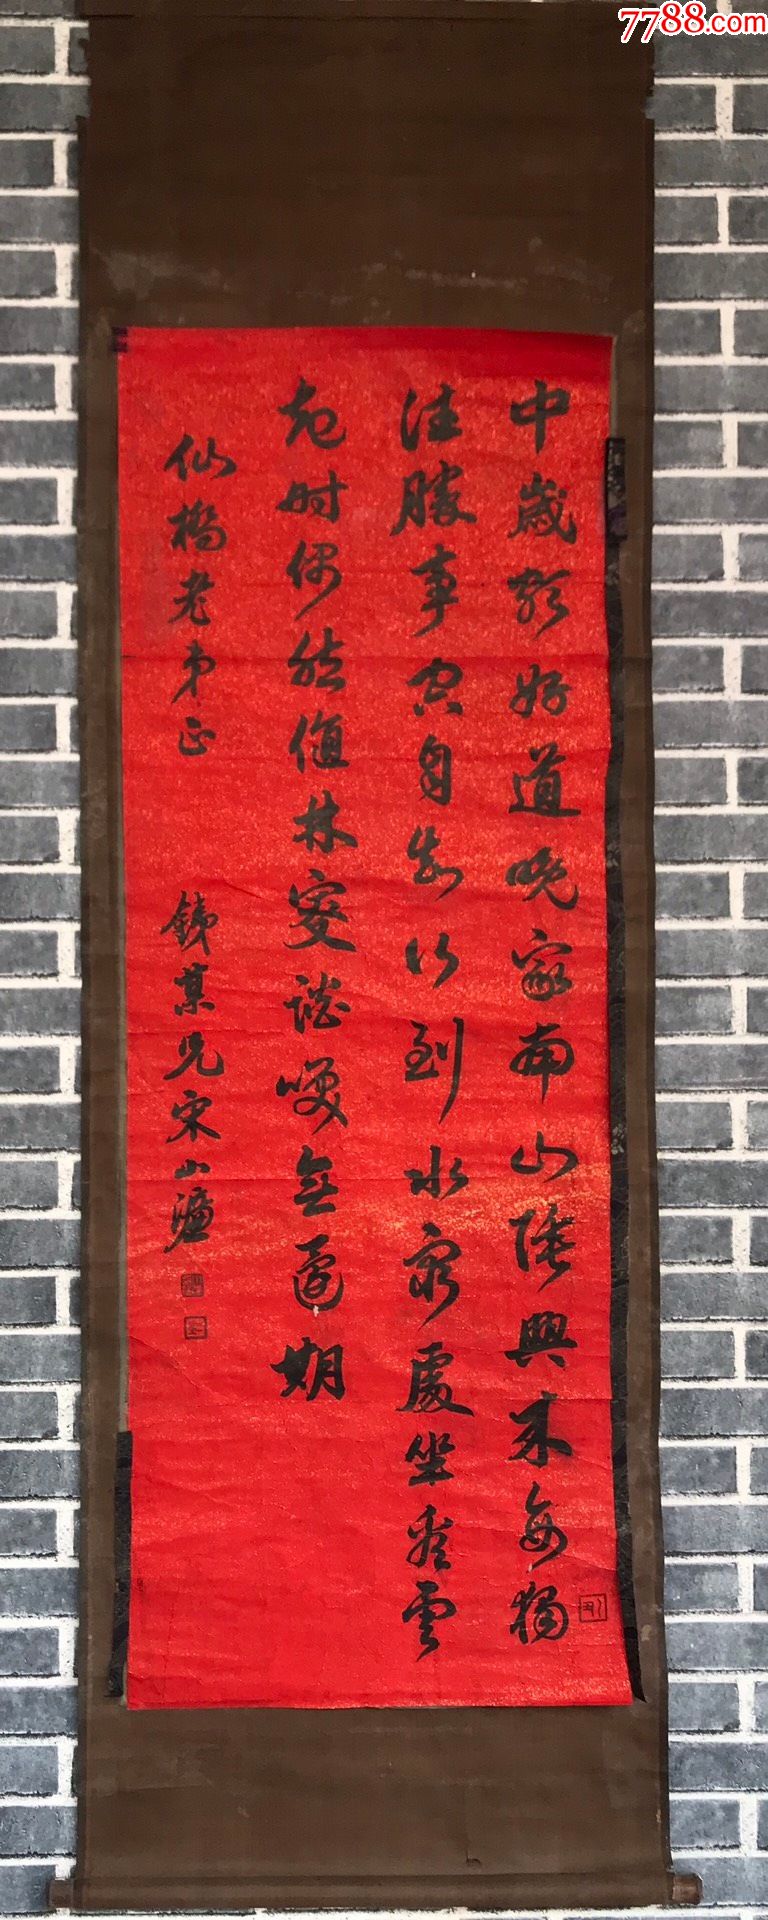 7788.com
中歲頗好道晚家南山陲興來每獨
往勝事空自知行到水窮處坐看雲
起時偶然值林叟談笑無還期
仙橋老弟正
鐵某兄宋小濂